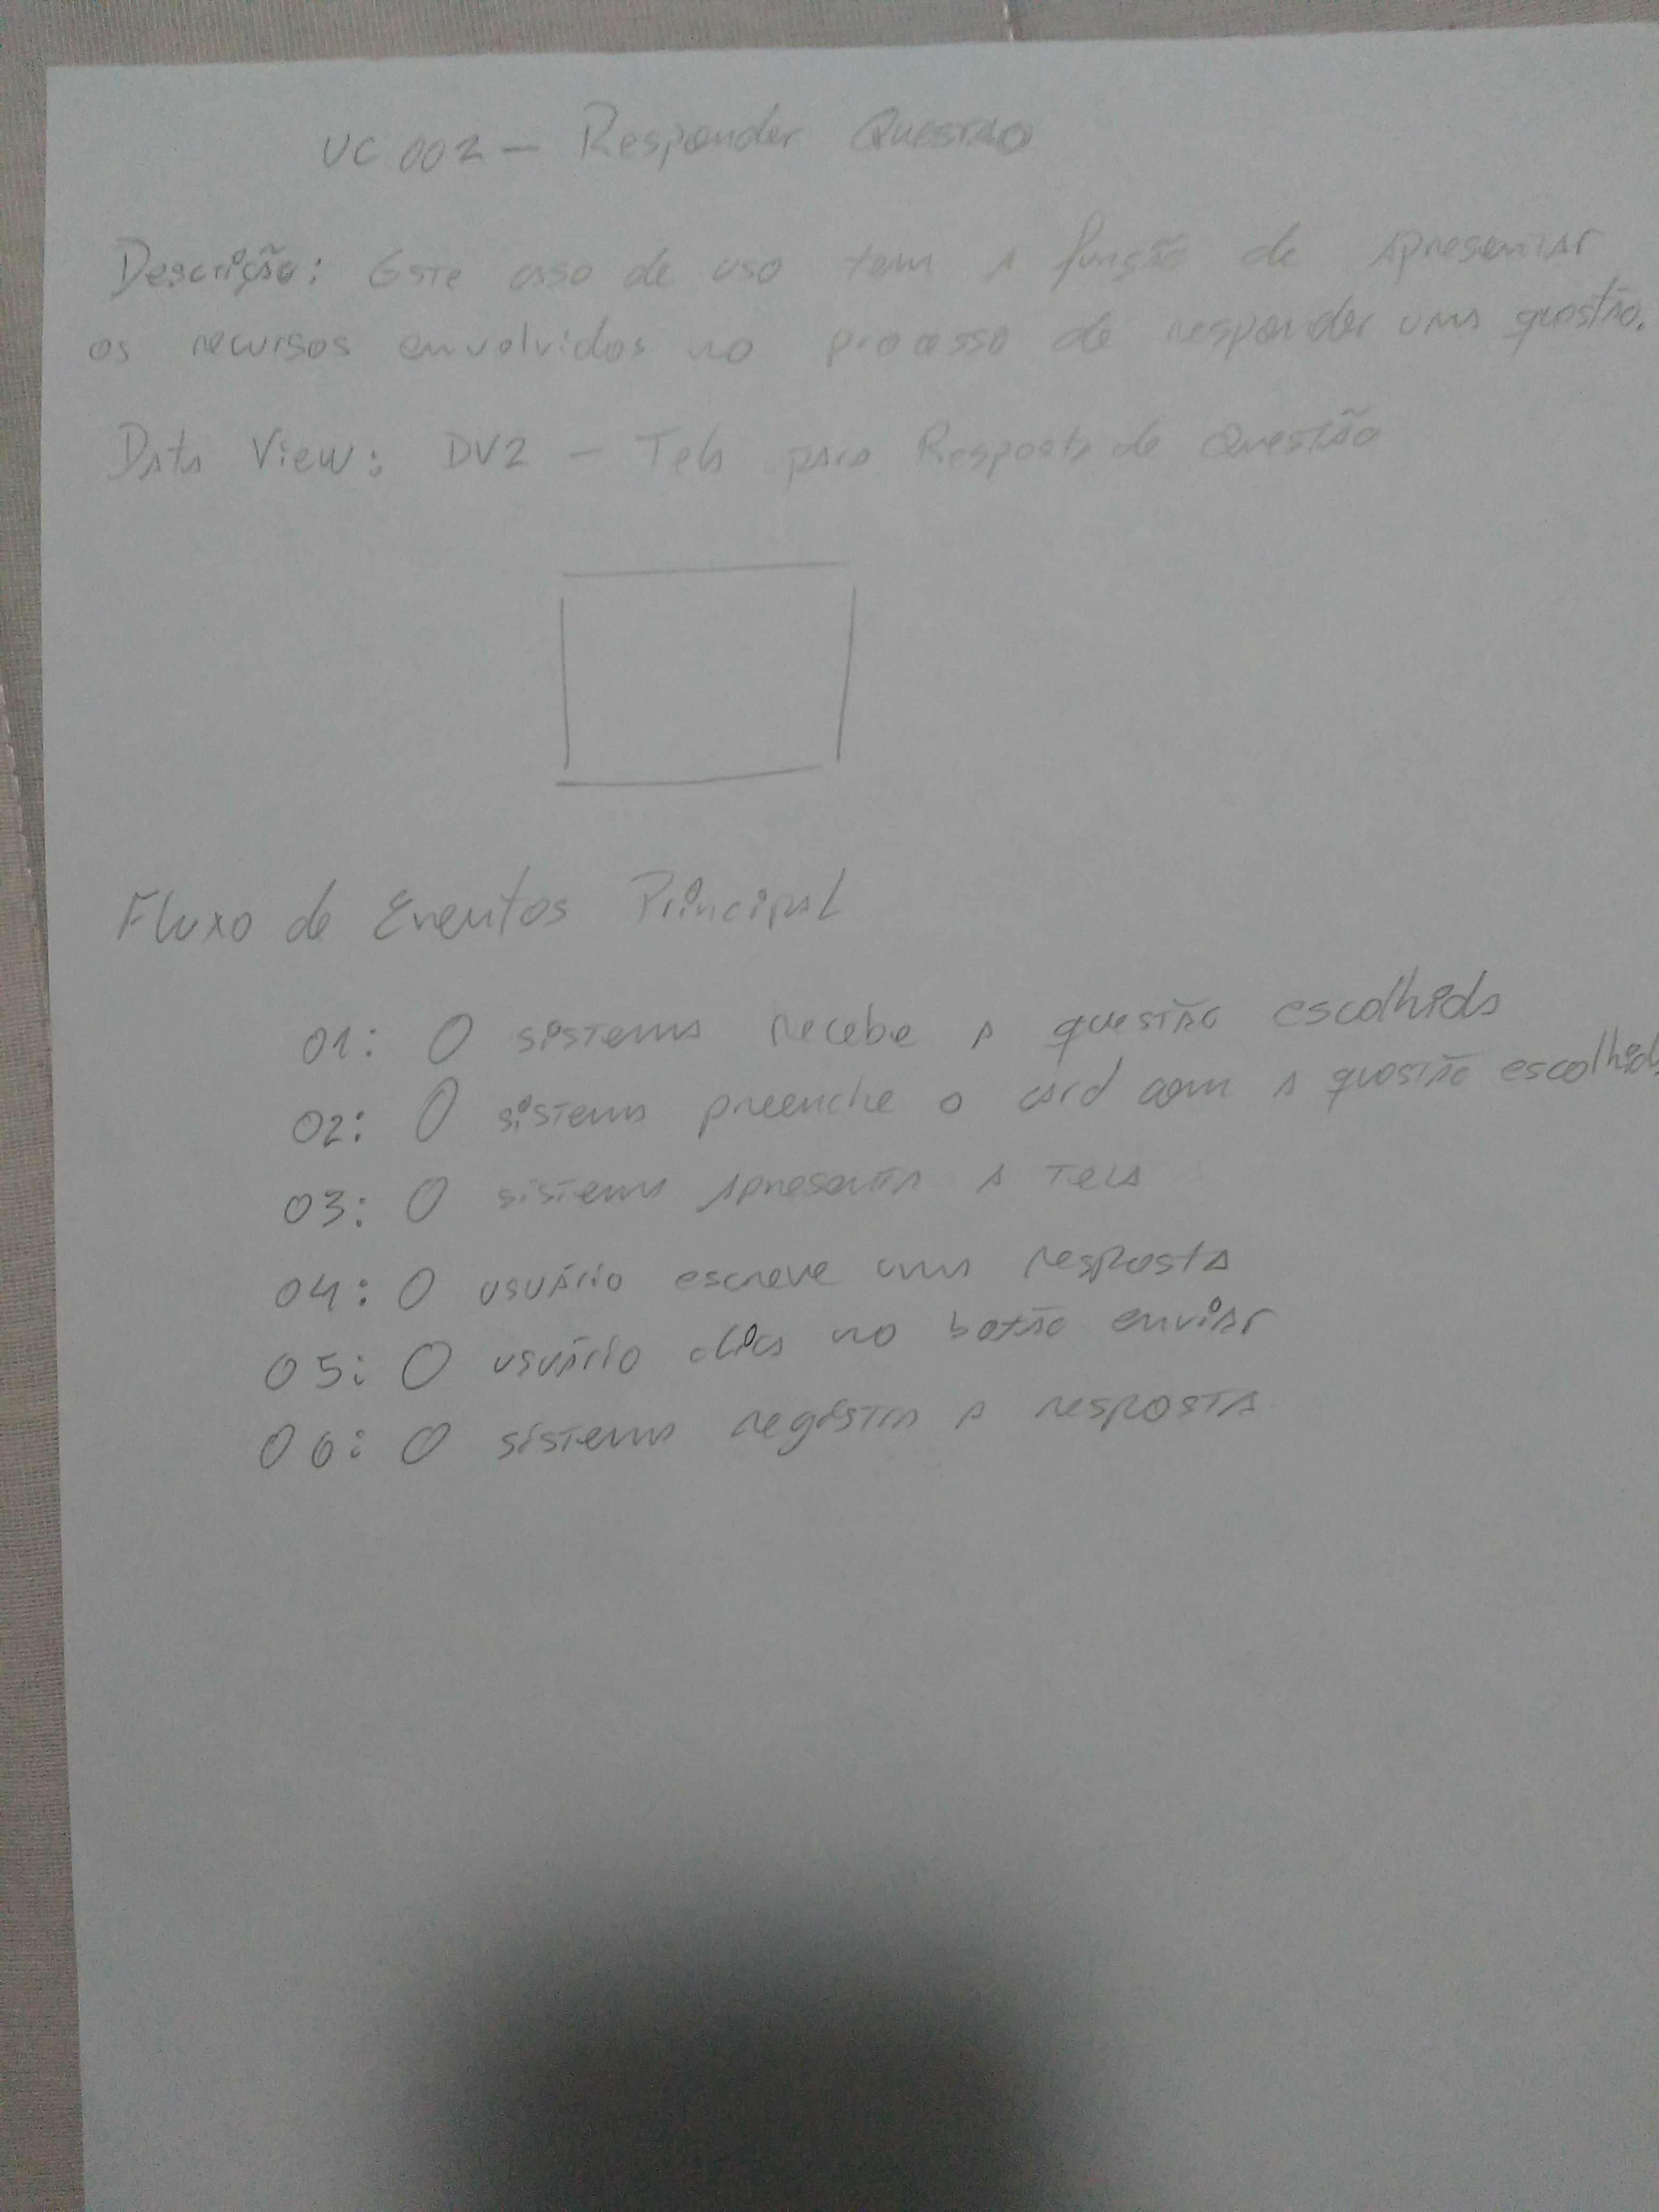 UC 002 - Responder Questão
Descrição: Este caso de uso tem a função de apresentar
os recursos envolvidos no processo de responder uma questão.
Data View: DV2 - Tela para Resposta de Questão
Fluxo de Eventos Principal
01: O sistema recebe a questão escolhida
02: O sistema preenche o card com a questão escolhida
03: O sistema apresenta a tela
04: O usuário escreve uma resposta
05: O usuário clica no botão enviar
06: O sistema registra a resposta